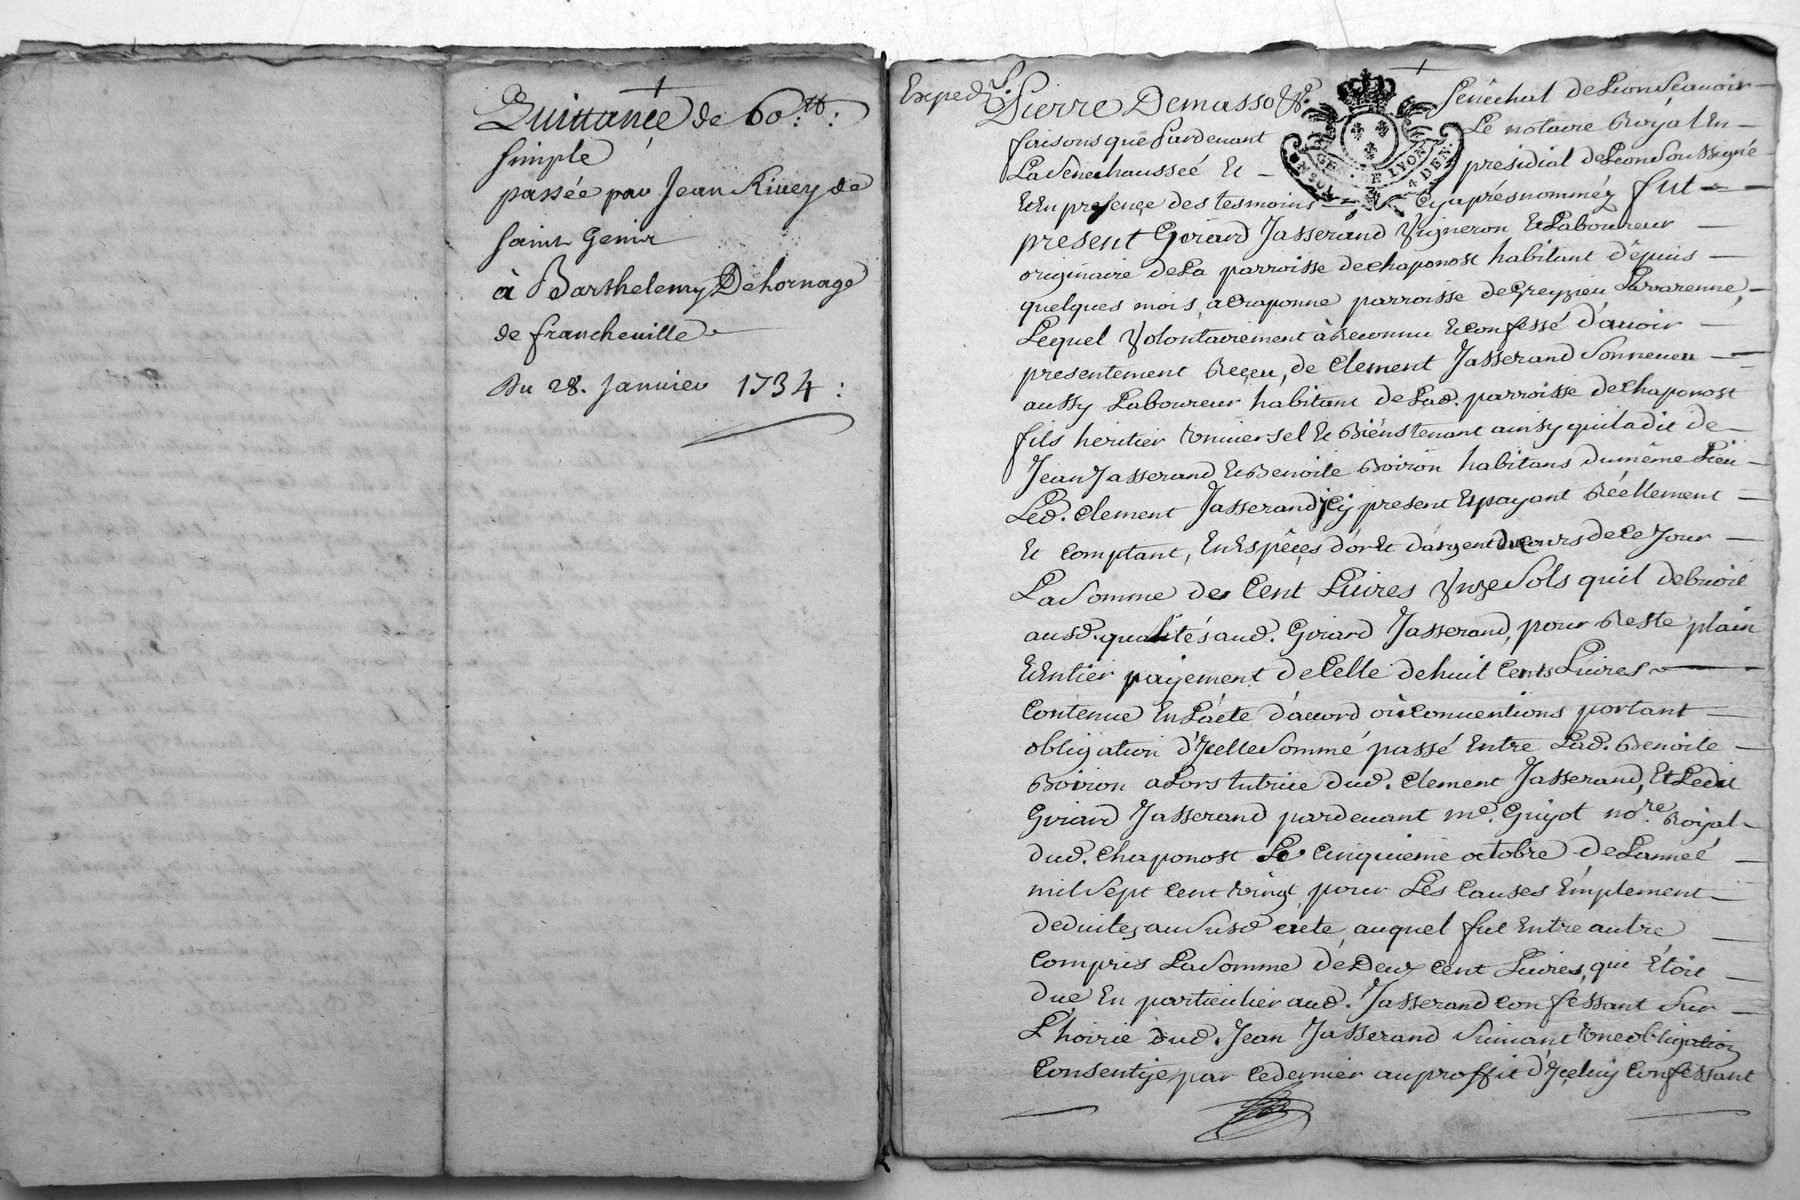 Quittance de 60.tt:
simple
passée par Jean Rivey de
saint Genix
à Barthelemy Dehornage
de francheville
Du 28. Janvier 1734:
Exped.
Pierre Demasso &c. Senêchal de Lion Sçavoir
faisons que Pardevant Le notaire Royal En
La Sénechausseé Et présidial de Lion Soussigné
Et En presençe des tesmoins Cy aprés nomméz fut
present Girard Jasserand Vigneron Et Laboureur
originaire de La parroisse de chaponost habitant dépuis
quelques mois, a Craponne parroisse de Greyzieu Lavarenne,
Lequel Volontairement à Reconnu Et confessé d'avoir
presentement Reçeu, de Clement Jasserand Son neveu
aussy Laboureur habitant de Lad. parroisse de chaponost
fils heritier Universel Et Biéns tenant ainsy qu'il a dit de
Jean Jasserand Et Benoite Boiron habitans du même Lieu
Led. Clement Jasserand icy present Et payant Réellement
Et Comptant, En Espêçes d'or Et d'argent du Cours de Ce Jour
La Somme de Cent Livres Unze Sols qu'il debvoit
ausd. qualités aud. Girard Jasserand, pour Reste plain
Et Entier payement de Celle de huit Cents Livres
Contenue En L'acte d'accord où Conventions portant
obligation d'Icelle Sommé passé Entre Lad. Benoite
Boiron alors tutrice dud. Clement Jasserand, Et Ledit
Girard Jasserand pardevant me. Guyot no.re Royal
dud. Chaponost Le Cinquiême octobre de L'anneé
mil Sept Cent Vingt, pour Les Causes Emplement
deduites au Susd acte, auquel fut Entre autre
Compris La Somme de Deux Cent Livres, qui Étoit
düe En particulier aud. Jasserand Confessant Sur
L'hoirie dud. Jean Jasserand Suivant Une obligation
Consentije par Ce dernier au proffit d'Içeluy Confessant